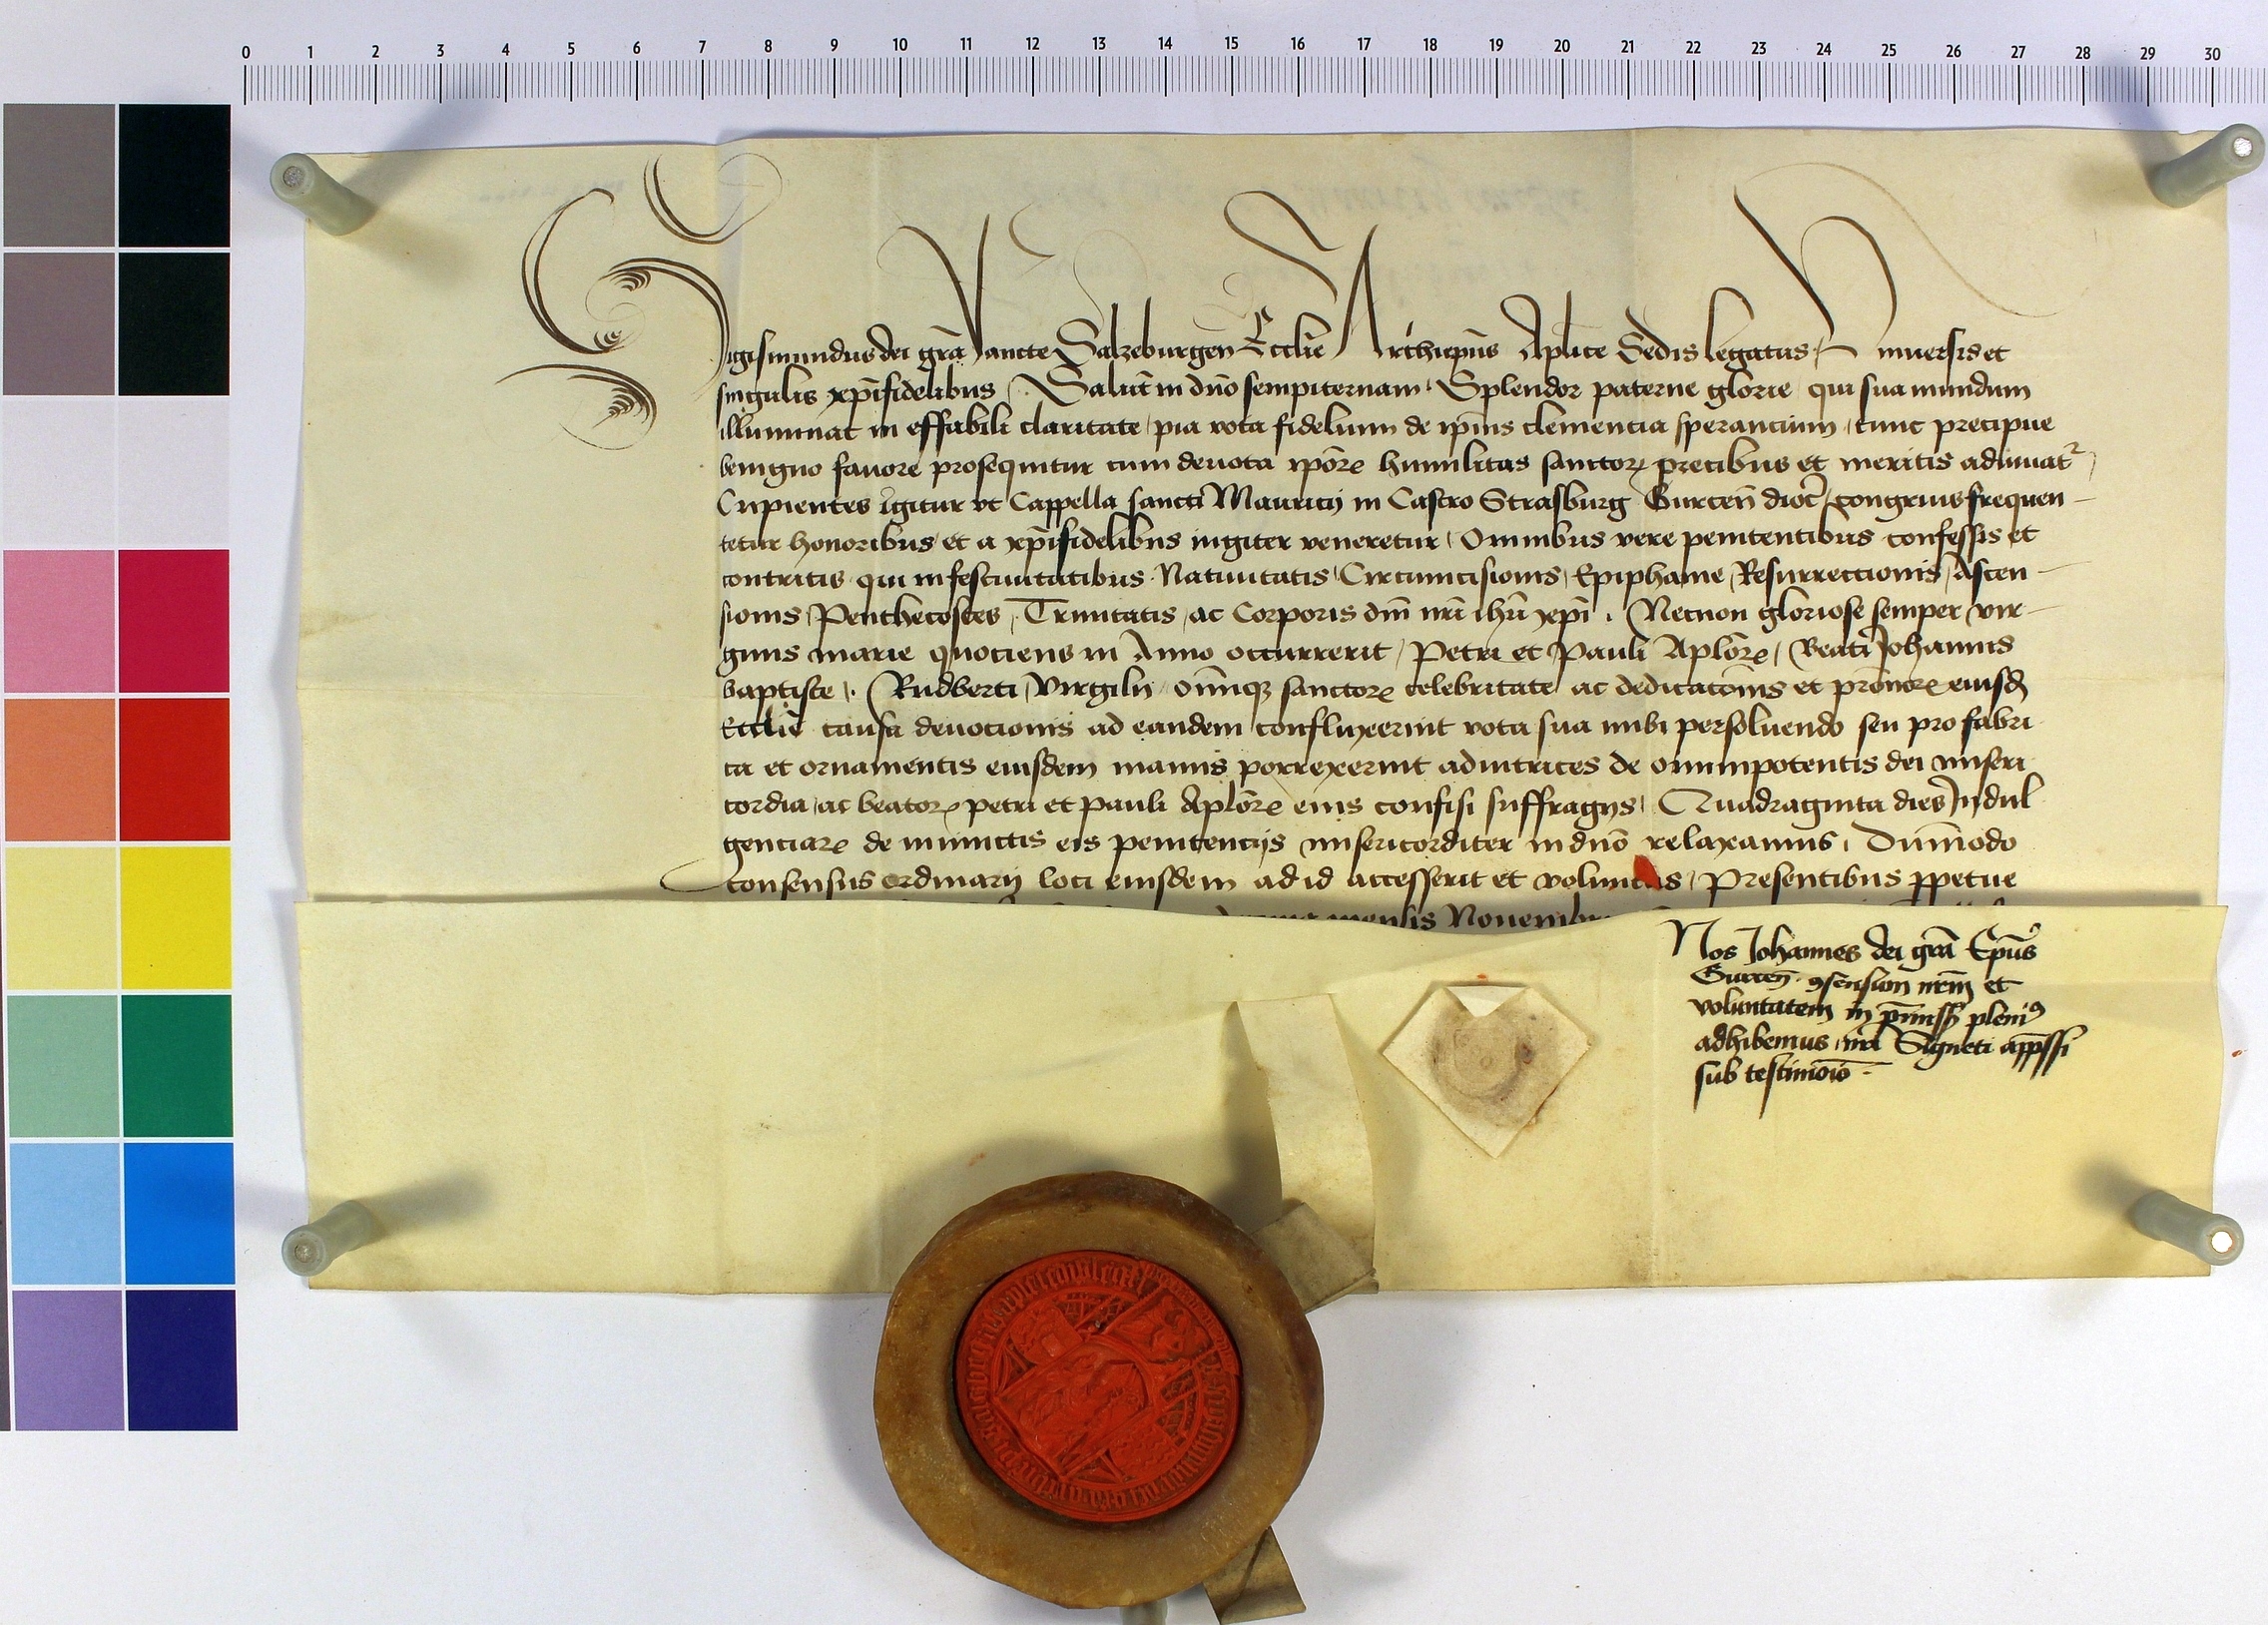 0 1 2 3 4 5 6 7 8 9 10 11 12 13 14 15 16 17 18 19 20 21 22 23 24 25 26 27 28 29 30
Sigismundus dei gra̅ Sancte Salzeburgen̅ Eccl̅ie Archiep̅us Apl̅ice Sedis legatus, Vniuersis et
singulis xp̅ifidelibus, Salut̅ in dn̅o sempiternam. Splendor paterne glorie qui sua mundum
illuminat in effabili claritate, pia vota fidelium de ip̅ius clementia sperantium, tunc precipue
benigno fauore prosequitur cum deuota ip̅oꝝ humilitas sanctoꝝ precibus et meritis adiuuat᷑,
Cupientes igitur vt Cappella sancti Mauricij in Castro Strasburg Gurcen̅ dioc̅ congruis frequen
tetur honoribus et a xp̅ifidelibus iugiter veneretur, Omnibus vere penitentibus confessis et
contritis qui in festiuitatibus Natiuitatis, Circumcisionis, Epiphanie, Resurrectionis, Ascen
sionis, Penthecostes, Trinitatis, ac Corporis dn̅i nr̅i ihu̅ xp̅i, Necnon gloriose semper vir
ginis marie quotiens in Anno occurrerit, Petri et Pauli Apl̅oꝝ, Beati Johannis
baptiste, Rudberti, Virgilij, Om̅iuqꝫ sanctoꝝ celebritate ac dedicato̅nis et pr̅onoꝝ eiusd̅
Eccl̅ie causa deuotionis ad eandem confluxerint vota sua inibi persoluendo seu pro fabri
ca et ornamentis eiusdem manus porrexerint adiutrices de omnipotentis dei miseri
cordia, ac beatoꝝ petri et pauli Apl̅oꝝ eius confisi suffragijs, Quadraginta dies Indul
gentiaꝝ de iniunctis eis penitentijs misericorditer in dn̅o relaxamus, Dum̅odo
consensus ordinarij loci eiusdem ad id accesserit et voluntas, Presentibus ꝑpetue
mensis Nouembr
Nos Johannes dei gra̅ Ep̅us
Gurcen̅ ꝯsensum nr̅m et
voluntatem in pn̅tis̅ pleniꝰ
adhibemus, nr̅i Signeti app̅ssi
sub testimo̅io